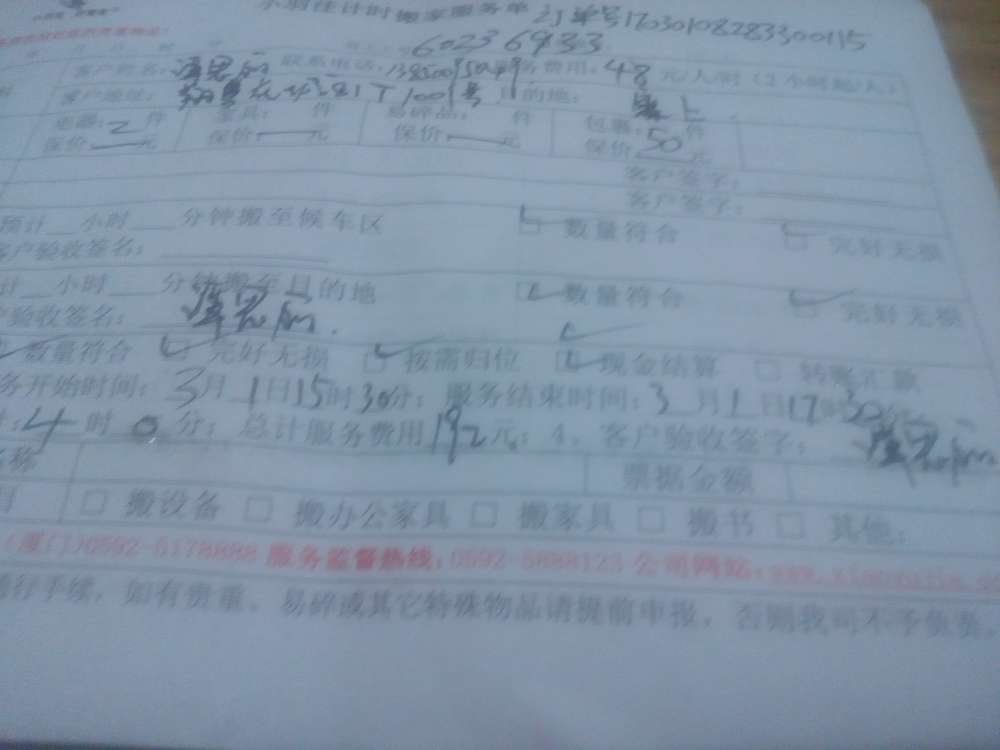 计时搬家服务单 订单号17030108283300115
60236933
客户姓名: 联系电话: 费用:48元/人/时(2小时起/人)
客户地址: 1001号 目的地:
电器:2件 家具: 件 易碎品: 件 包裹:50件
保价 元 保价 元 保价 元 保价 元
客户签字:
客户签字:
预计 小时 分钟搬至候车区 数量符合 完好无损
客户验收签名:
计 小时 分钟搬至目的地 数量符合 完好无损
验收签名:
数量符合 完好无损 按需归位 现金结算 转账汇款
务开始时间:3月1日15时30分;服务结束时间:3月1日17时30分
:4时0分;总计服务费用192元;4、客户验收签字:
名称 票据金额
目 搬设备 搬办公家具 搬家具 搬书 其他:
(厦门)0592-5178888 服务监督热线:0592-5888123 公司网站:
行手续,如有贵重、易碎或其它特殊物品请提前申报,否则我司不予负责。